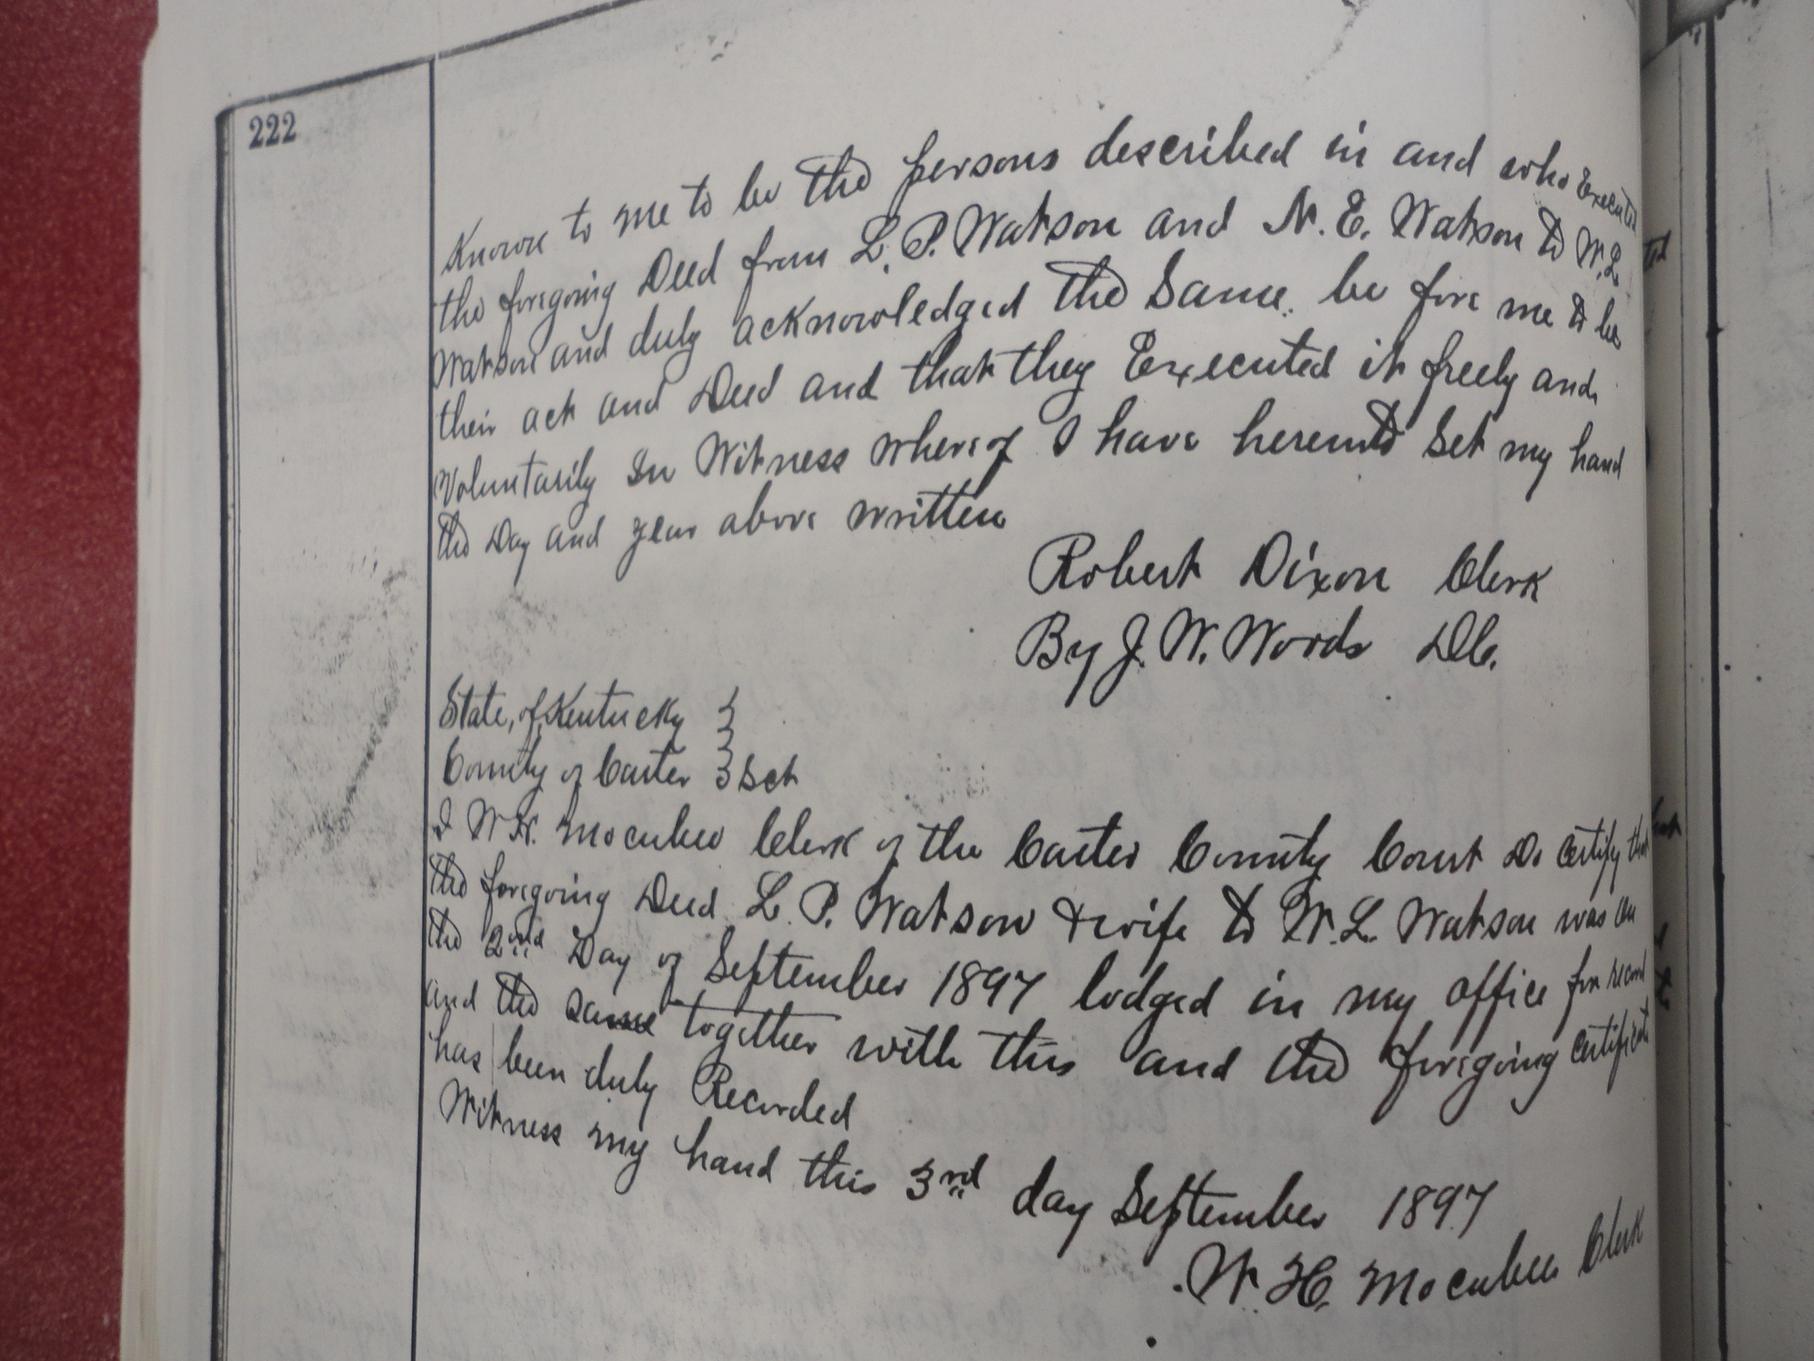 222
Known to me to be the persons described in and who Executed
the foregoing Deed from L. P. Watson and N. E. Watson to W. L.
Watson and duly acknowledged the Same be fore me to be
their act and Deed and that they Executed it freely and
Voluntarily In Witness whereof I have hereunto Set my hand
the Day and year above written
Robert Dixon Clerk
By J. W. Woods D.C.
State, of Kentucky }
County of Carter } Sct
I W. H. Mocubee Clerk of the Carter County Court Do Certify that
the foregoing Deed L. P. Watson & wife to W. L. Watson was on
the 2nd Day of September 1897 lodged in my office for record
and the same together with this and the foregoing certificate
has been duly Recorded
Witness my hand this 3rd day September 1897
W. H. Mocubee Clerk